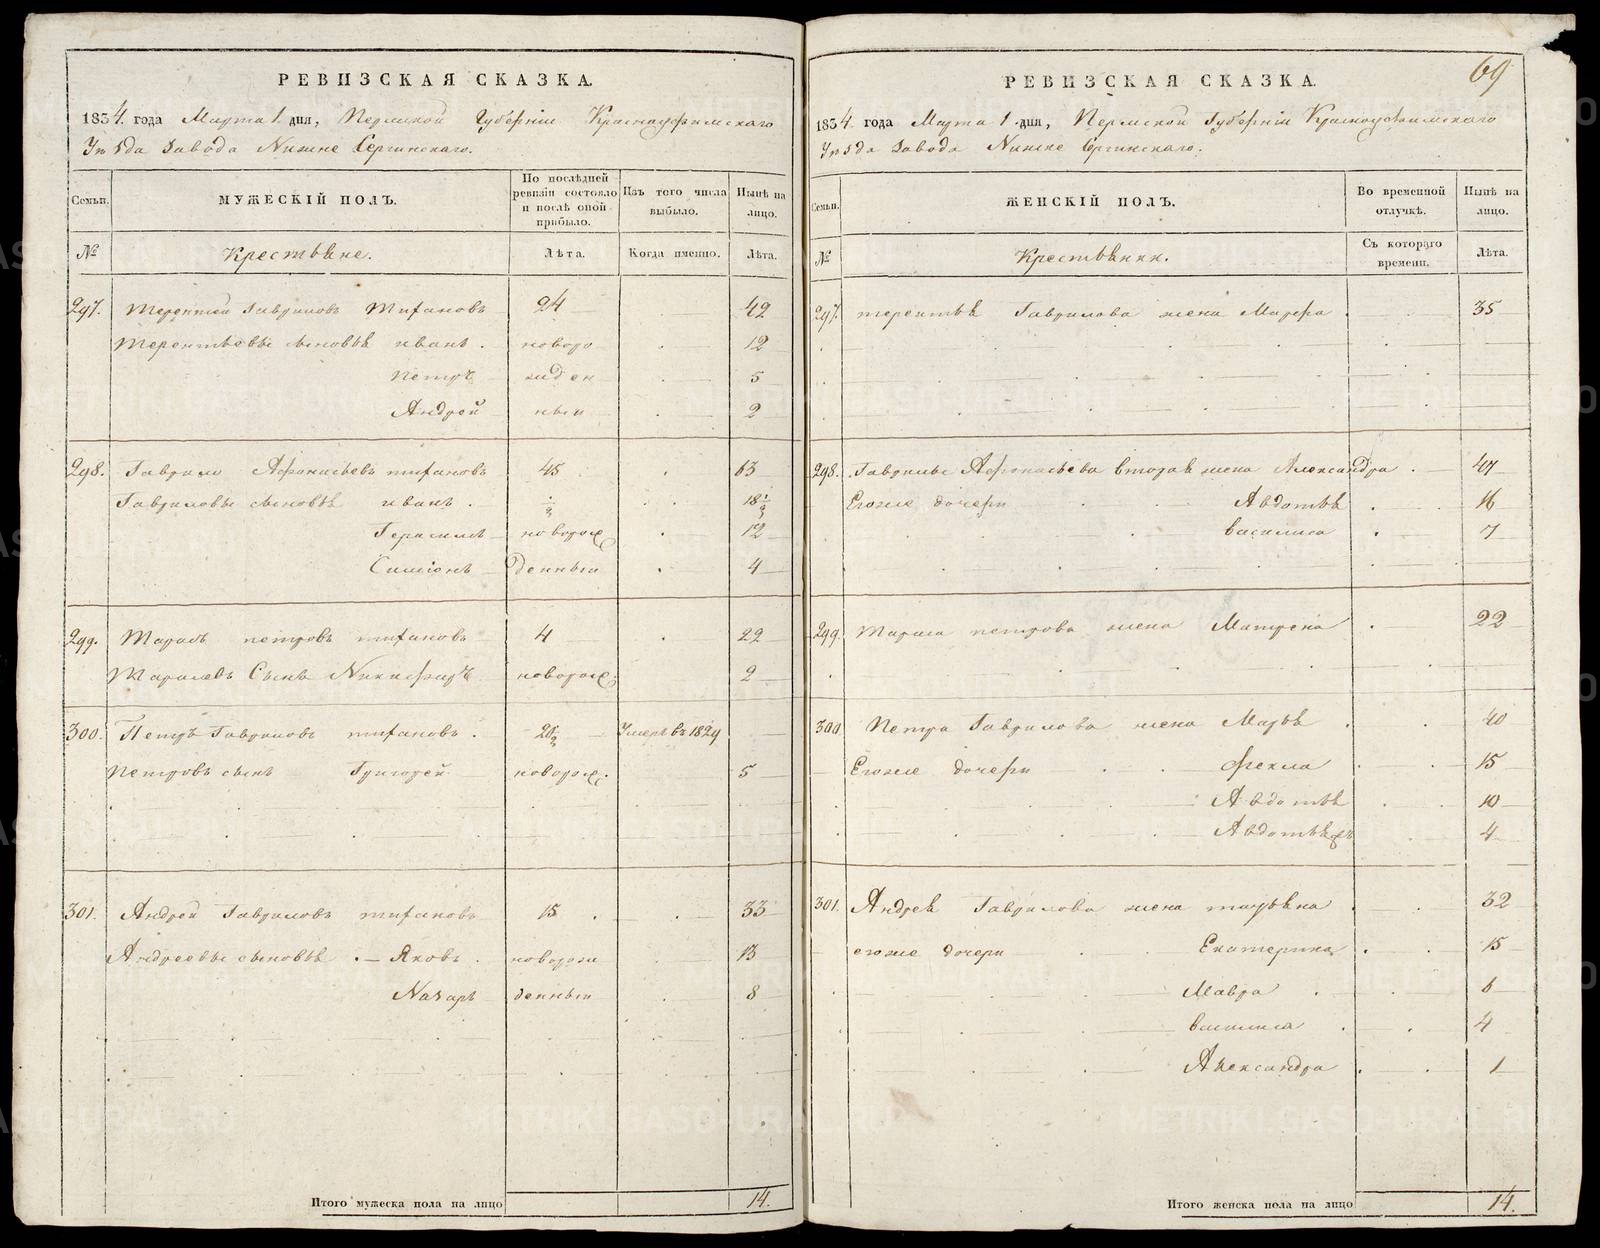 РЕВИЗСКАЯ СКАЗКА.
1834. года Марта 1. дня, Пермской Губерніи Красноуфимскаго
Уѣзда Завода Нижне Сергинскаго.
Семьи. МУЖЕСКІЙ ПОЛЪ. По послѣдней ревизіи состояло и послѣ оной прибыло. Изъ того числа выбыло. Нынѣ на лицо.
№ Крестьяне. Лѣта. Когда именно. Лѣта.
297. Терентей Гавриловъ Тифановъ 24 42
Терентьевы сыновья иванъ. новоро 12
Петръ жден 5
Андрей ныи 2
298. Гаврило Афонасьевъ тифановъ 45 63
Гавриловы сыновья иванъ. ½ 18½
Герасимъ новорож 12
Симіонъ денныи 4
299. Тарасъ петровъ тифановъ 4 22
Тарасовъ Сынъ Никифоръ новорож: 2
300. Петръ Гавриловъ тифановъ. 20½ Умеръ въ 1829
Петровъ сынъ Григорей новорож. 5
301. Андрей Гавриловъ тифановъ 15 33
Андреевы сыновья Яковъ. новорож 13
Назаръ денныи 8
Итого мужеска пола на лицо 14.
69
РЕВИЗСКАЯ СКАЗКА.
1834. года Марта 1. дня, Пермской Губерніи Красноуфимскаго
Уѣзда Завода Нижне Сергинскаго.
Семьи. ЖЕНСКІЙ ПОЛЪ. Во временной отлучкѣ. Нынѣ на лицо.
№ Крестьянки. Съ котораго времени. Лѣта.
297. терентья Гаврилова жена Марфа 35
298. Гаврилы Афонасьева вторая жена Александра 47
Егоже дочери Авдотья 16
василиса 7
299. Тараса петрова жена Матрена 22
300 Петра Гаврилова жена Марья 40
Егоже дочери Фекла 15
Авдотья 10
Авдотья 4
301. Андрея Гаврилова жена татьяна 32
егоже дочери Екатерина 15
Мавра 6
василиса 4
Александра 1
Итого женска пола на лицо 14.
METRIKI.GASO-URAL.RU